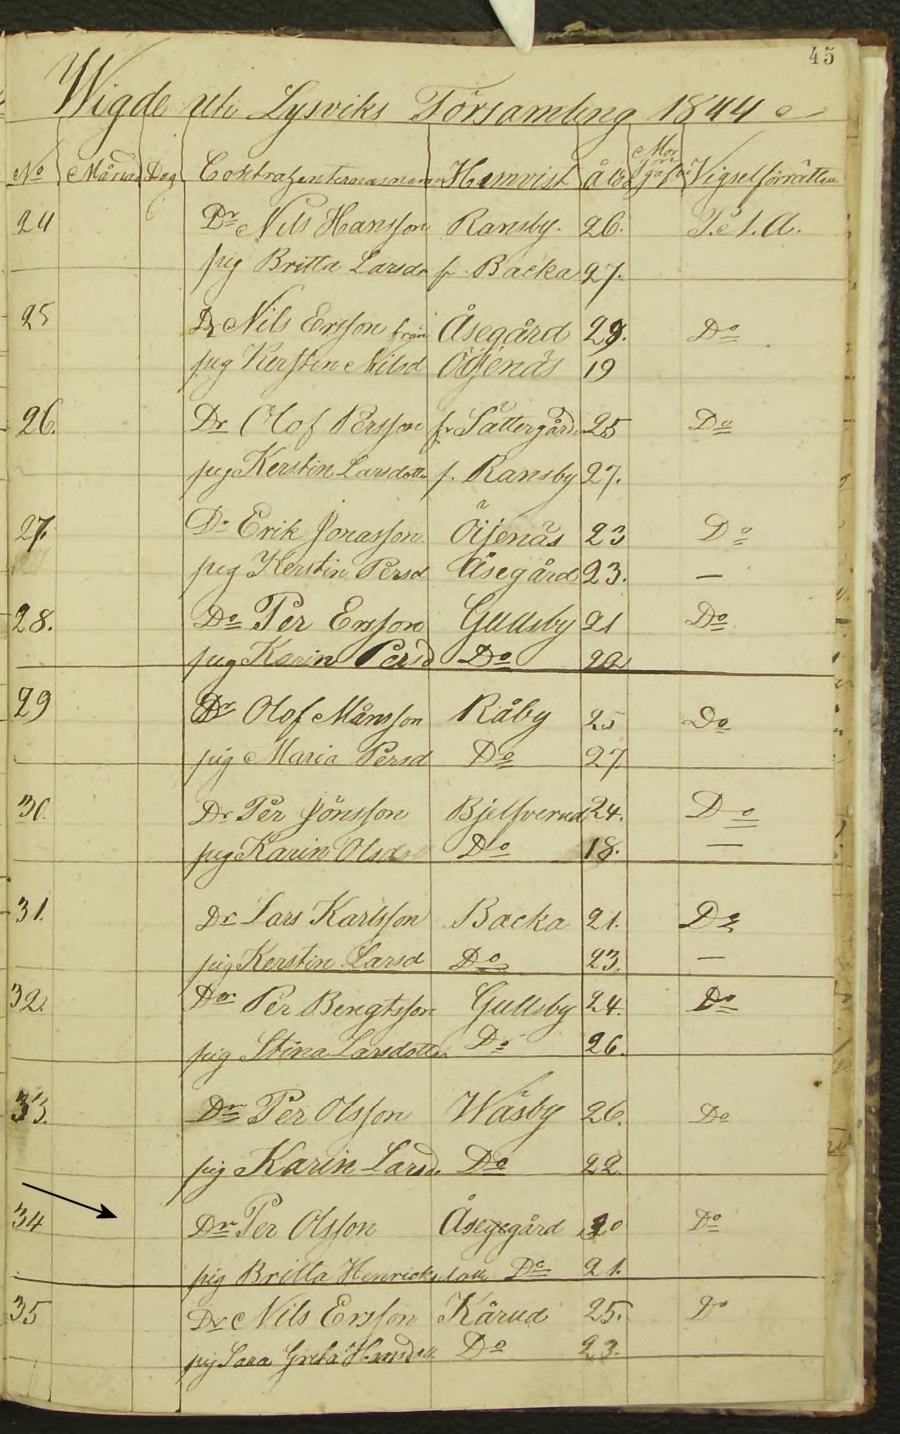 45
Wigde uti Lysviks Församling 1844
No Månad Dag Contrahenternas namn Hemvist Ålder Morgongåfva Vigselförrättare
24 Dr Nils Hansson Ransby. 26. P. A. A.
pig Britta Larsdr fr. Backa 27.
25 Dr Nils Ersson från Åsegård 29.  Do
pig Kerstin Nilsd Öijenäs 19
26. Dr Olof Persson fr Sättergård 25 Do
pig Kerstin Larsdotter f. Ransby 27.
27. Dr Erik Jonasson Öijenäs 23 Do
pig Kerstin Persd Åsegård 23. —
28. Dr Per Ersson Gullsby 21 Do
pig Karin Persd Do 22
29 Dr Olof Månsson Råby 25 Do
pig Maria Persd Do 27
30. Dr Pär Jönsson Bjelfverud 24. Do
pig Karin Olsd Do 18. —
31. Dr Lars Karlsson Backa 21. Do
pig Kerstin Larsd Do 23. —
32. Dr Per Bengtsson Gullsby 24. Do
pig Stina Larsdotter Do 26.
33. Dr Per Olsson Wåsby 26. Do
pig Karin Larsdr Do 22.
34 Dr Per Olsson Åsegård 20 Do
pig Britta Henricksdottr Do 21.
35 Dr Nils Ersson Kårud 25. Do
pig Sara Greta Hansdtt Do 23.